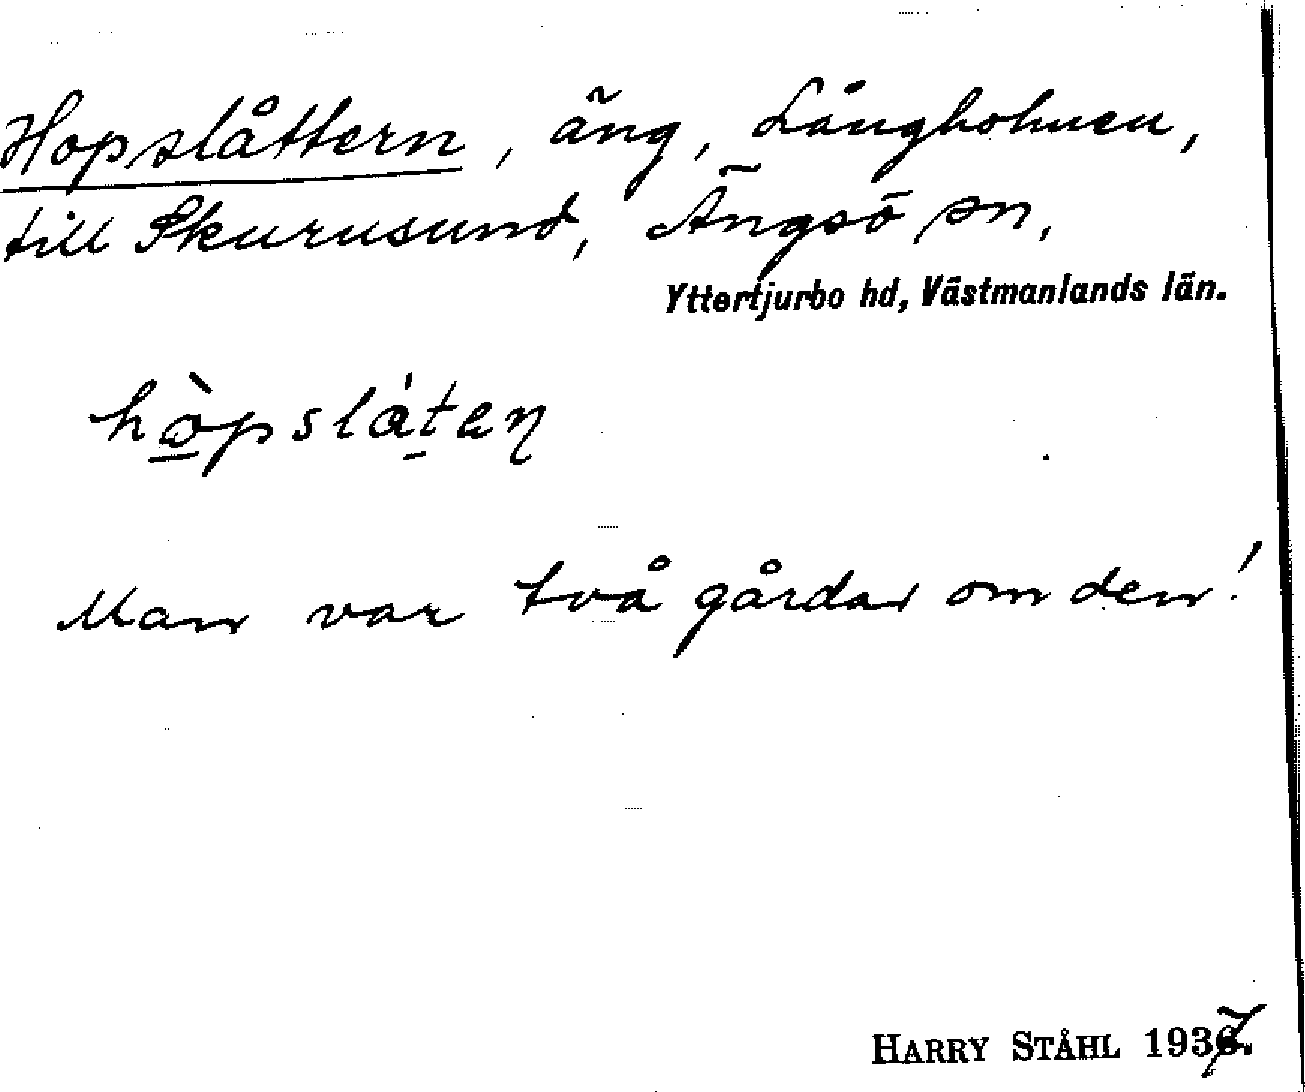 Hopslåttern, äng, Långholmen,
till Skurusund, Ängsö sn,
Yttertjurbo hd, Västmanlands län.
hòpsláteɳ
Man var två gårdar om den!
HARRY STÅHL 1937.